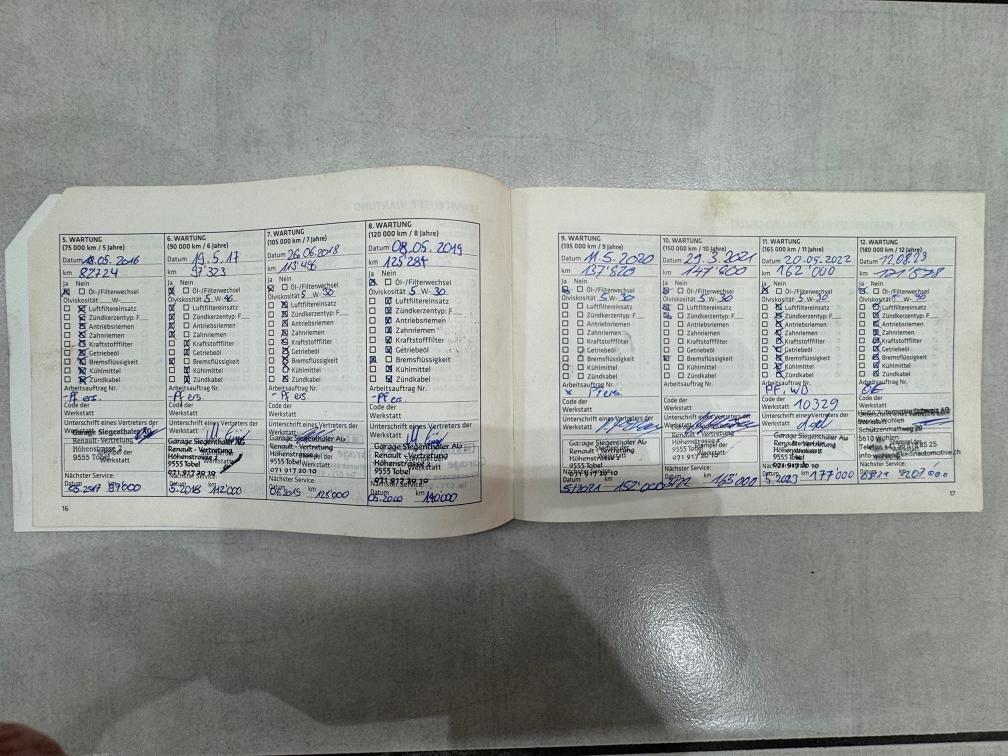 5. WARTUNG
(75 000 km / 5 Jahre)
Datum 18.05.2016
km 82724
Ja Nein
Öl-/Filterwechsel
Ölviskosität W-
Luftfiltereinsatz
Zündkerzentyp: F
Antriebsriemen
Zahnriemen
Kraftstofffilter
Getriebeöl
Bremsflüssigkeit
Kühlmittel
Zündkabel
Arbeitsauftrag Nr.
- Pf ers.
Code der
Werkstatt
Unterschrift eines Vertreters der
Werkstatt
Garage Siegenthaler AG
Renault - Vertretung
Höhenstrasse
9555 Tobel
Nächster Service:
Datum km
05.2017 97000
16
6. WARTUNG
(90 000 km / 6 Jahre)
Datum 19.5.17
km 97'323
Ja Nein
Öl-/Filterwechsel
Ölviskosität 5 W-
Luftfiltereinsatz
Zündkerzentyp: F
Antriebsriemen
Zahnriemen
Kraftstofffilter
Getriebeöl
Bremsflüssigkeit
Kühlmittel
Zündkabel
Arbeitsauftrag Nr.
- Pf ers.
Code der
Werkstatt
Unterschrift eines Vertreters der
Werkstatt
Garage Siegenthaler AG
Renault - Vertretung
Höhenstrasse 2
9555 Tobel
071 917 20 10
Nächster Service:
Datum km
5.2018 112'000
7. WARTUNG
(105 000 km / 7 Jahre)
Datum 26.06.2018
km 113'496
Ja Nein
Öl-/Filterwechsel
Ölviskosität 5 W-30
Luftfiltereinsatz
Zündkerzentyp: F
Antriebsriemen
Zahnriemen
Kraftstofffilter
Getriebeöl
Bremsflüssigkeit
Kühlmittel
Zündkabel
Arbeitsauftrag Nr.
- Pf ers.
Code der
Werkstatt
Unterschrift eines Vertreters der
Werkstatt
Garage Siegenthaler AG
Renault - Vertretung
Höhenstrasse 2
9555 Tobel
071 917 20 10
Nächster Service:
Datum km
06.2019 128'000
8. WARTUNG
(120 000 km / 8 Jahre)
Datum 08.05.2019
km 125'284
Ja Nein
Öl-/Filterwechsel
Ölviskosität 5 W-30
Luftfiltereinsatz
Zündkerzentyp: F
Antriebsriemen
Zahnriemen
Kraftstofffilter
Getriebeöl
Bremsflüssigkeit
Kühlmittel
Zündkabel
Arbeitsauftrag Nr.
- Pf ers.
Code der
Werkstatt
Unterschrift eines Vertreters der
Werkstatt
Garage Siegenthaler AG
Renault - Vertretung
Höhenstrasse 2
9555 Tobel
071 917 20 10
Nächster Service:
Datum km
05.2020 140'000
9. WARTUNG
(135 000 km / 9 Jahre)
Datum 11.5.2020
km 137'820
Ja Nein
Öl-/Filterwechsel
Ölviskosität 5 W-30
Luftfiltereinsatz
Zündkerzentyp: F
Antriebsriemen
Zahnriemen
Kraftstofffilter
Getriebeöl
Bremsflüssigkeit
Kühlmittel
Zündkabel
Arbeitsauftrag Nr.
Pf ers.
Code der
Werkstatt
Unterschrift eines Vertreters der
Werkstatt
Garage Siegenthaler AG
Renault - Vertretung
Höhenstrasse 2
9555 Tobel
071 917 20 10
Nächster Service:
Datum km
5/2021 152'000
10. WARTUNG
(150 000 km / 10 Jahre)
Datum 29.3.2021
km 147'800
Ja Nein
Öl-/Filterwechsel
Ölviskosität 5 W-30
Luftfiltereinsatz
Zündkerzentyp: F
Antriebsriemen
Zahnriemen
Kraftstofffilter
Getriebeöl
Bremsflüssigkeit
Kühlmittel
Zündkabel
Arbeitsauftrag Nr.
Code der
Werkstatt
Unterschrift eines Vertreters der
Werkstatt
Garage Siegenthaler AG
Renault - Vertretung
Höhenstrasse 2
9555 Tobel
071 917 20 10
Nächster Service:
Datum km
163'000
11. WARTUNG
(165 000 km / 11 Jahre)
Datum 20.05.2022
km 162'000
Ja Nein
Öl-/Filterwechsel
Ölviskosität 5 W-30
Luftfiltereinsatz
Zündkerzentyp: F
Antriebsriemen
Zahnriemen
Kraftstofffilter
Getriebeöl
Bremsflüssigkeit
Kühlmittel
Zündkabel
Arbeitsauftrag Nr.
PF, WD
Code der
Werkstatt 10329
Unterschrift eines Vertreters der
Werkstatt
Garage Siegenthaler AG
Renault - Vertretung
Höhenstrasse
9555 Tobel
071 917 20 10
Nächster Service:
Datum km
5.2023 177'000
12. WARTUNG
(180 000 km / 12 Jahre)
Datum
km
Ja Nein
Öl-/Filterwechsel
Ölviskosität W-30
Luftfiltereinsatz
Zündkerzentyp: F
Antriebsriemen
Zahnriemen
Kraftstofffilter
Getriebeöl
Bremsflüssigkeit
Kühlmittel
Zündkabel
Arbeitsauftrag Nr.
Code der
Werkstatt
Automotive Schweiz AG
Wohlen
Schützenmattweg 20
5610 Wohlen
Nächster Service:
Datum km
17